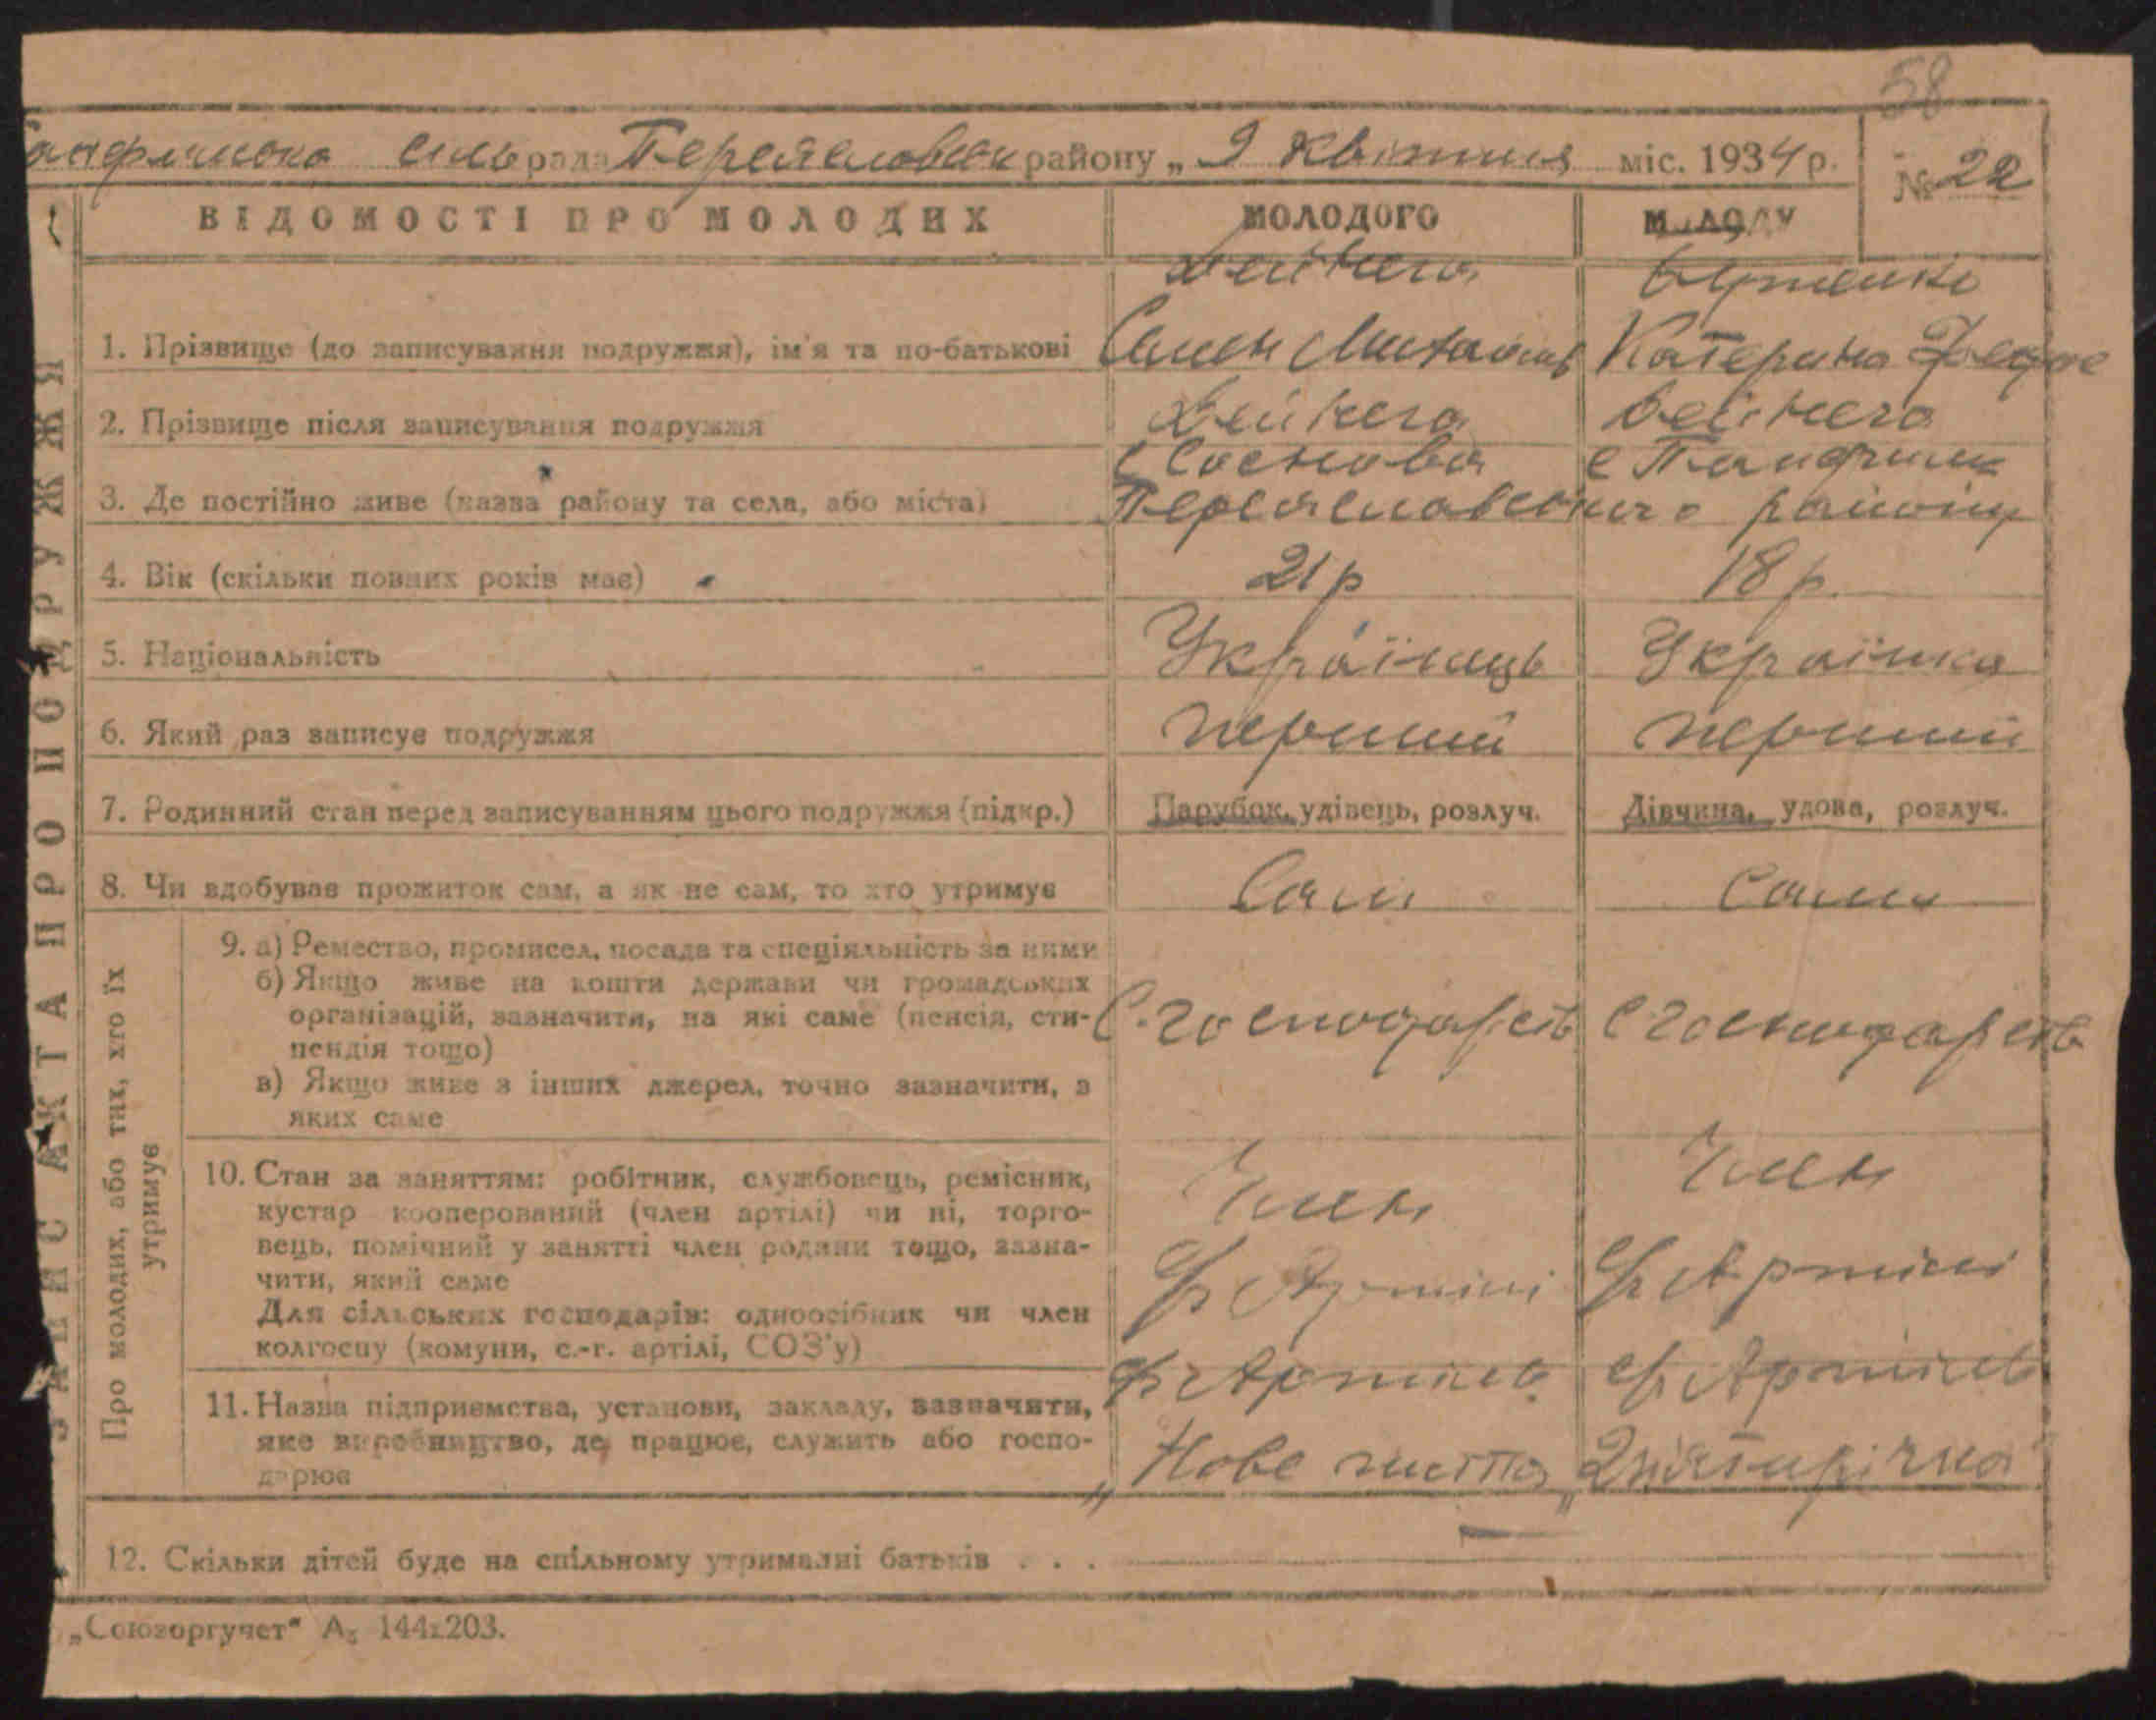 58
сільрада Переяславськ району „ 9 квітня міс. 1934 р.
№ 22
ВІДОМОСТІ ПРО МОЛОДИХ
МОЛОДОГО
МОЛОДУ
ЗАПИС АКТА ПРО ПОДРУЖЖЯ
1. Прізвище (до записування подружжя), ім'я та по-батькові
Семен Михайлов
Катерина Федор
2. Прізвище після записування подружжя
3. Де постійно живе (назва району та села, або міста)
с Соснова
с Панфили
Переяславського району
4. Вік (скільки повних років має)
21 р
18 р.
5. Національність
Українець
Українка
6. Який раз записує подружжя
перший
перший
7. Родинний стан перед записуванням цього подружжя (підкр.)
Парубок, удівець, розлуч.
Дівчина, удова, розлуч.
8. Чи здобував прожиток сам, а як не сам, то хто утримує
Сам
Сама
Про молодих, або тих, хто їх
утримує
9. а) Ремество, промисел, посада та спеціяльність за ними
б) Якщо живе на кошти держави чи громадських
організацій, зазначити, на які саме (пенсія, сти-
пендія тощо)
в) Якщо живе з інших джерел, точно зазначити, з
яких саме
С. господарств
С господарств
10. Стан за заняттям: робітник, службовець, ремісник,
кустар кооперований (член артілі) чи ні, торго-
вець, помічний у занятті член родини тощо, зазна-
чити, який саме
Для сільських господарів: одноосібник чи член
колгоспу (комуни, с.-г. артілі, СОЗ'у)
Член
Член
Артілі
Артілі
11. Назва підприємства, установи, закладу, зазначити,
яке виробництво, де працює, служить або госпо-
дарює
Артіль
Артіль
„Нове життя
„Пятирічка
12. Скільки дітей буде на спільному утриманні батьків . . .
—
„Союзоргучет“ А₅ 144х203.